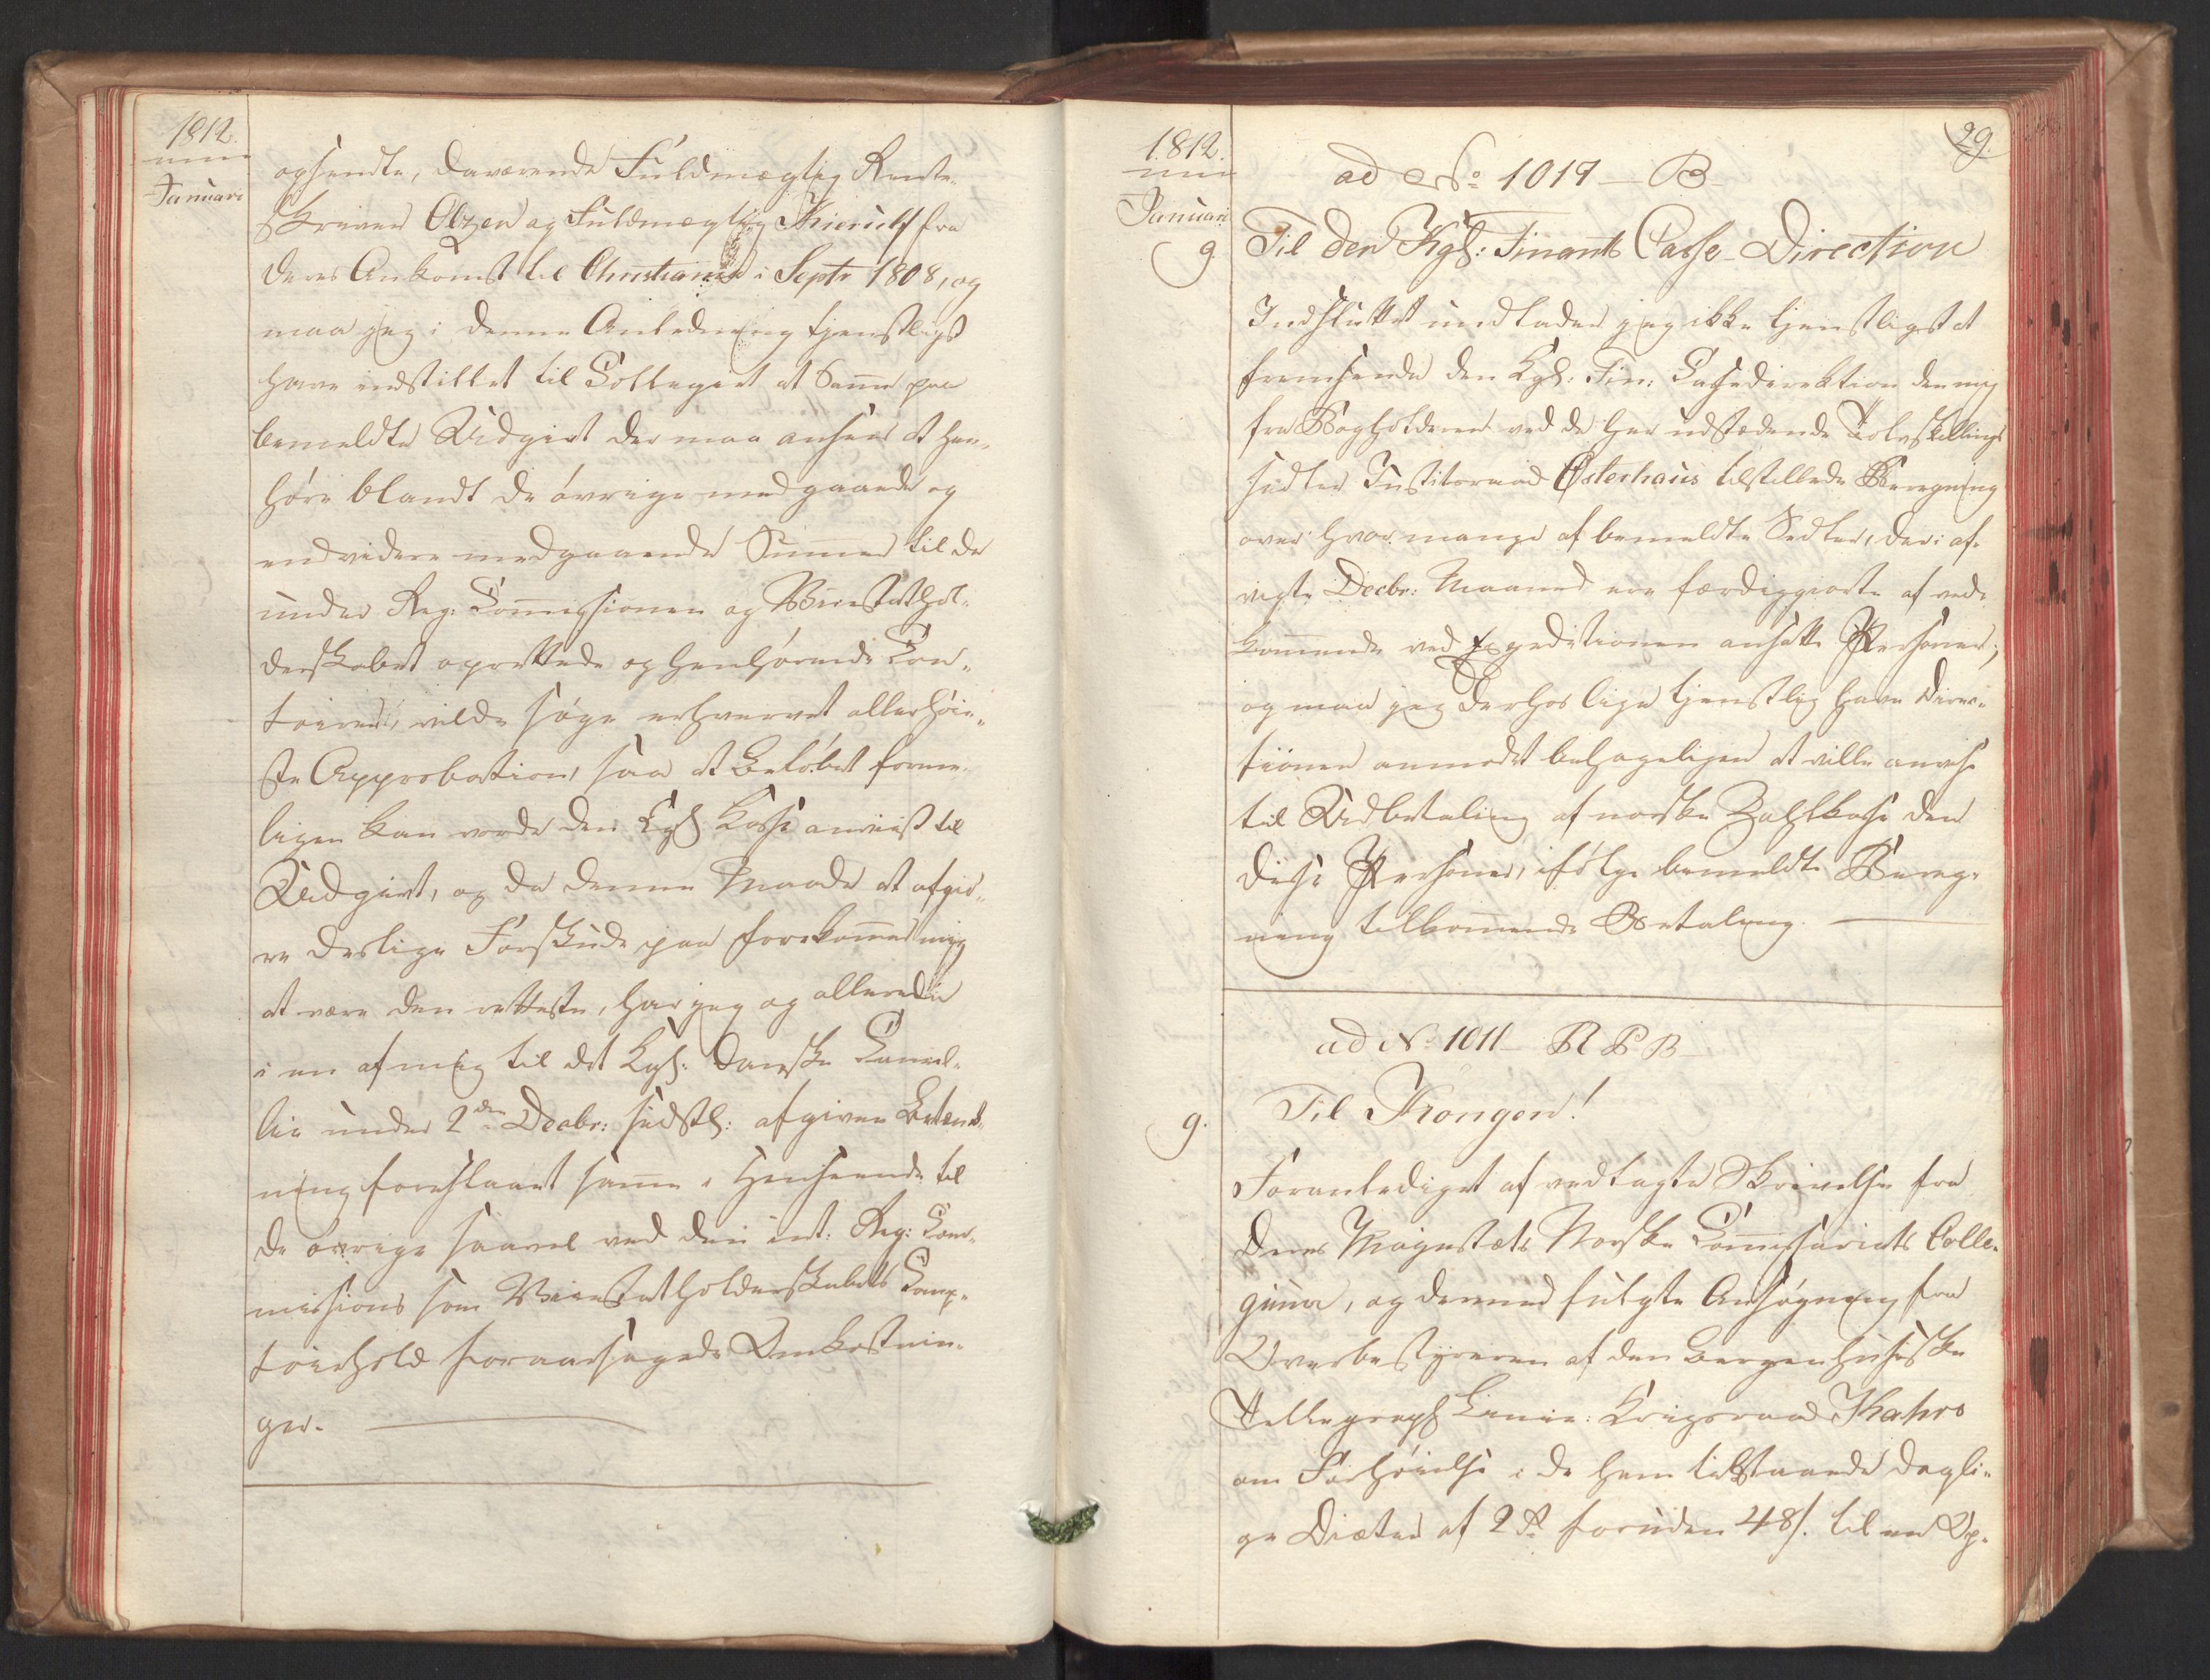 1812.
Januari
opsendte, daværende Fuldmægtig Rente-
skriver Olzen og Fuldmægtig Thierulf fra
deres Ankomst til Christiania i Septr 1808, og
maa jeg i denne Anledning tjenstligst
have indstillet til Collegiet at Summa paa
bemeldte Udgivt der maa ansees at hen-
høre blandt de øvrige medgaaede og
endvidere medgaaende Summer til de
under Reg: Commissionen og Vicestathol-
derskabet oprettede og henhørende Con-
toirer, vilde søge erhvervet allerhøie-
ste Approbation, saa at Beløbet forme-
ligen kan vorde den Kgl. Kasse anviist til
Udgivt, og da denne Maade at afgiø-
re deslige Forskude paa forekommer mig
at være den retteste, har jeg og allerede
i en af mig til det Kgl: danske Cancel-
lie under 2den Decbr: sidstl: afgiven Betænk-
ning foreslaaet samme i Henseende til
de øvrige saavel ved den int: Reg: Com-
missions som Vicestatholderskabets Comp-
toirhold foraarsagede Omkostnin-
ger.
29.
1812.
Januari
ad No 1019 - B -
9 Til den Kgl: Finants Casse-Direction
Indsluttet undlader jeg ikke tjenstligst at
fremsende den Kgl: Fin: Cassedirektion den mig
fra Bogholderen ved de her udstædende Tolvskillings
sedler Justitsraad Østerhaus tilstillede Beregning
over hvor mange af bemeldte Sedler, der i af-
vigte Decbr: Maaned ere færdiggiorte af ved-
kommende ved Expeditionen ansatte Personer;
og maa jeg derhos lige tjenstlig have Direc-
tionen anmodet behageligen at ville anvise
til Udbetaling af norske Zahlkasse den
disse Personer, ifølge bemeldte Bereg-
ning tilkommende Betaling.
ad No 1011 - R P B -
9. Til Kongen!
Foranlediget af vedlagte Skrivelse fra
Deres Majestæts Norske Commissariats Colle-
gium, og dermed fulgte Ansøgning fra
Overbestyreren af den Bergenhusiske
Tellegraph Linie: Krigsraad Kahrs
om Forhøielse i de ham tilstaaede dagli-
ge Diæter af 2 Rd foruden 48 s. til en Op-